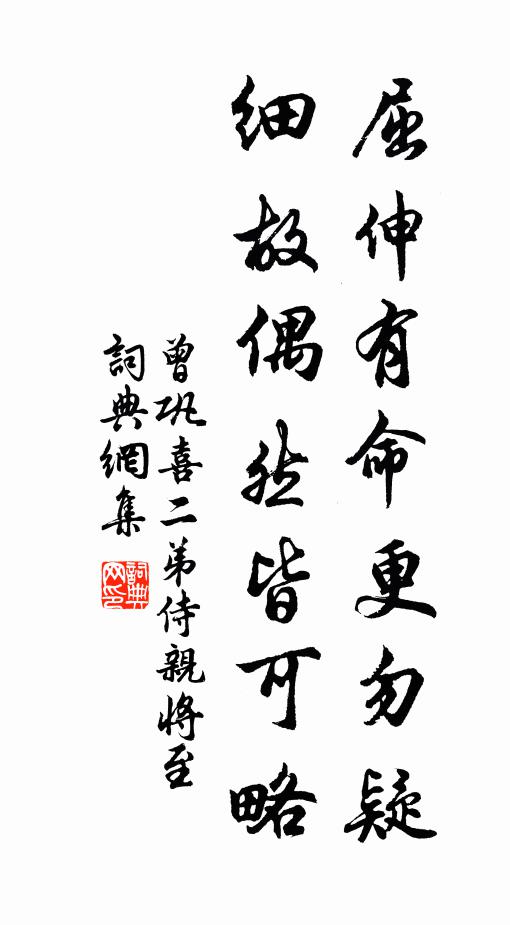 屈伸有命更勿疑
細故偶然皆可略
曾巩喜二弟侍親將至
詞典網集
詞典网印